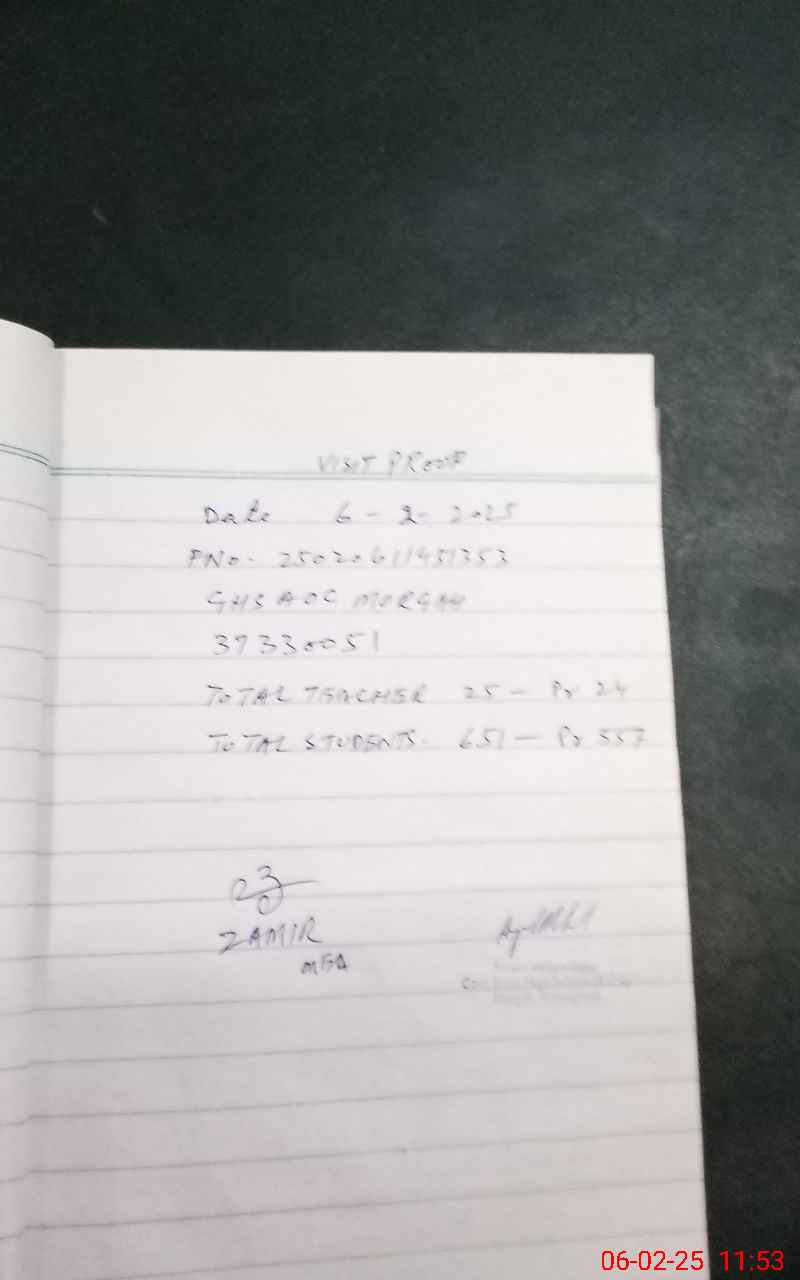 VISIT PROOF
Date 6 - 2 - 2025
PNo. 25020611451353
GHS AOC MORGAH
37330051
TOTAL TEACHER 25 - Pr 24
TOTAL STUDENTS. 651 - Pr 557
ZAMIR
MEA
06-02-25 11:53